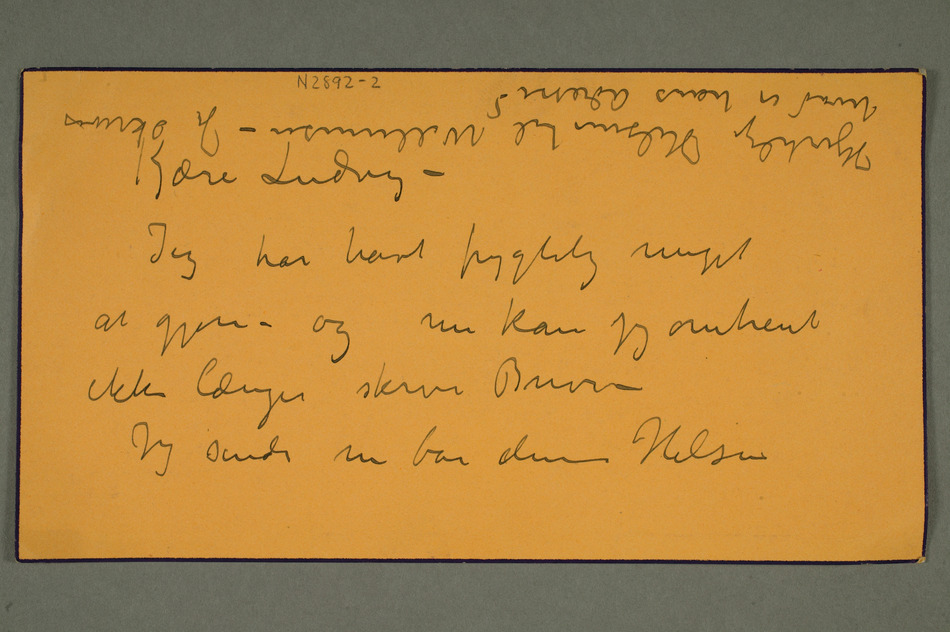 N2892-2
Kjære Ludvig –
Jeg har havt frygtelig meget
at gjøre – og nu kan jeg omtrent
ikke længer skrive Breve –
Jeg sender nu bare denne Hilsen
Hjertelig Hilsen til Willumsen – Jeg skriver
hvad er hans adresse?